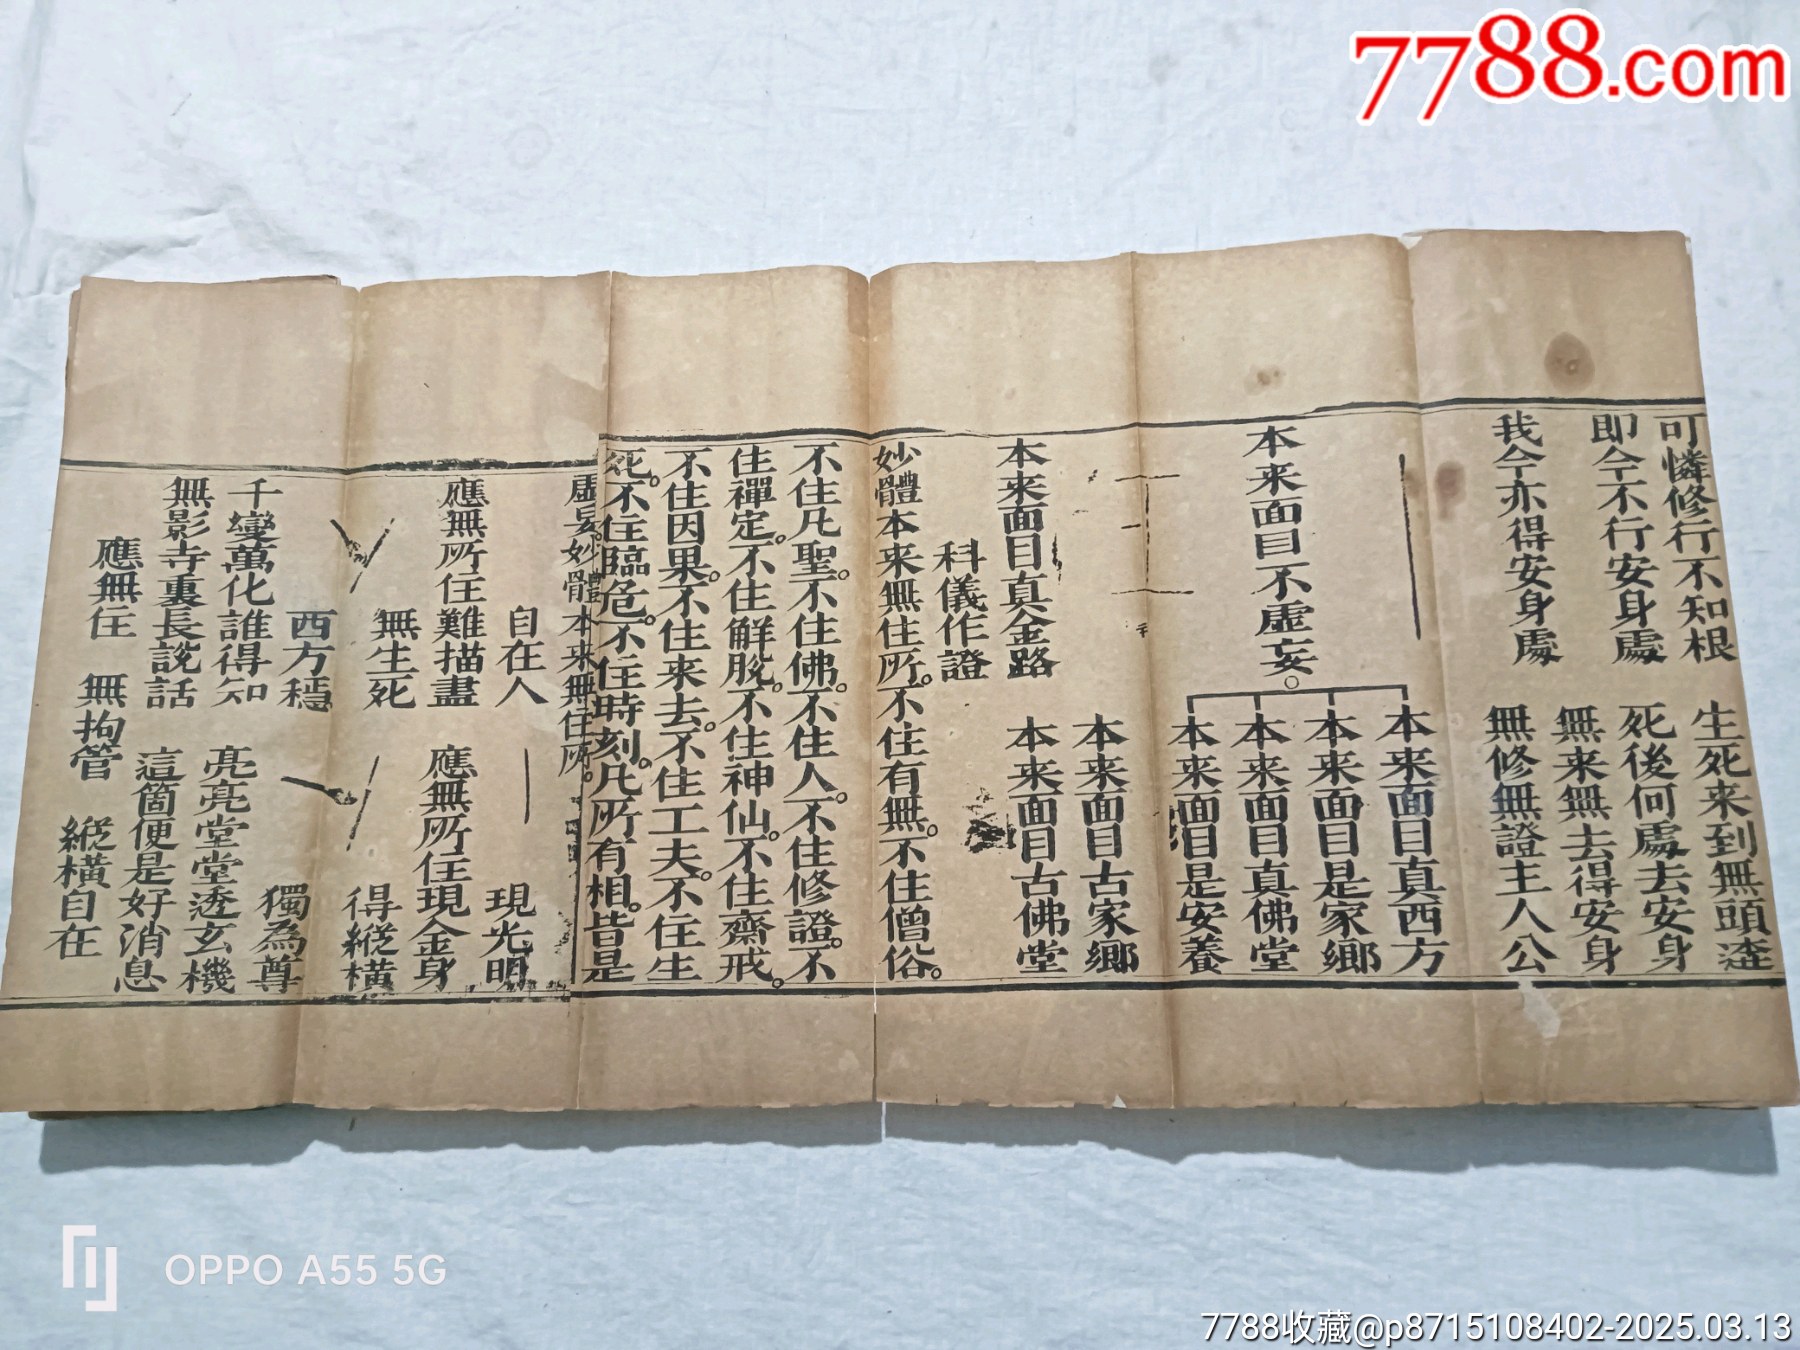 可憐修行不知根 生死来到無頭逩
即今不行安身處 死後何處去安身
無来無去得安身
我今亦得安身處 無修無證主人公
本来面目真西方
本来面目是家郷
本来面目不虚妄。
本来面目真佛堂
本来面目是安養
本来面目古家郷
本来面目真金路 本来面目古佛堂
科儀作證
妙體本来無住所。不住有無。不住僧俗。
不住凡聖。不住佛。不住人。不住修證。不
住禪定。不住解脫。不住神仙。不住齋戒。
不住因果。不住来去。不住工夫。不住生
死。不住臨危。不住時刻。凡所有相。皆是
虚妄。妙體本来無住所。
自在人 現光明
應無所住難描畫 應無所住現金身
無生死 得縱橫
西方穩 獨為尊
千變萬化誰得知 亮亮堂堂透玄機
無影寺裏長說話 這箇便是好消息
應無住 無拘管 縱橫自在
7788.com
OPPO A55 5G
7788收藏@p8715108402-2025.03.13